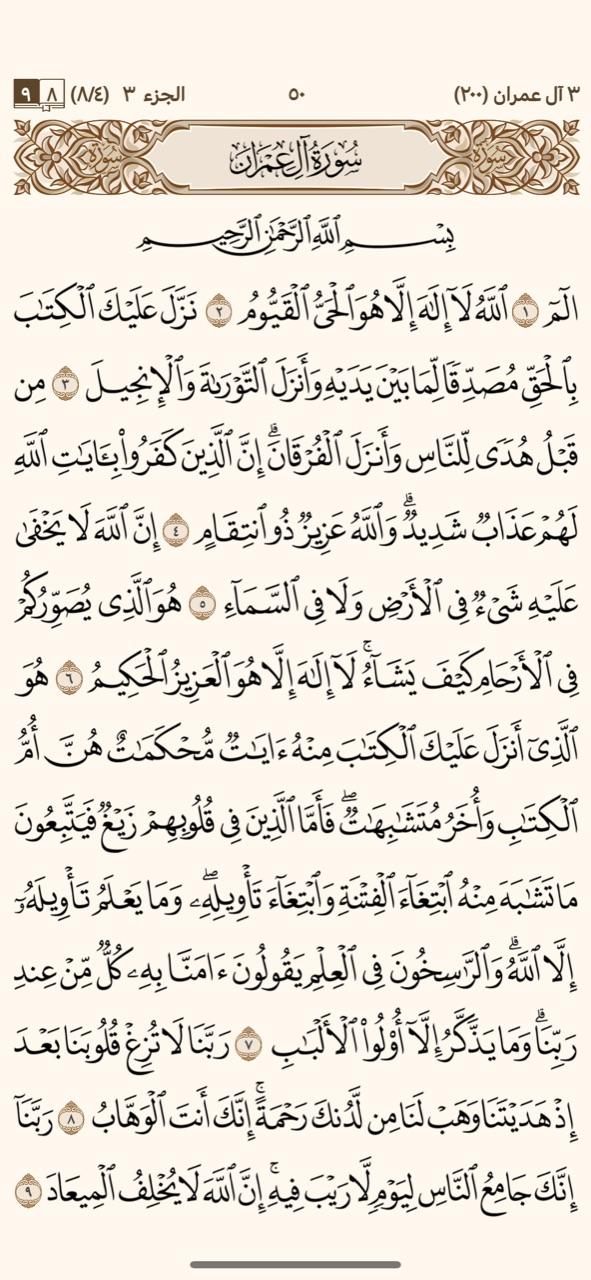 ٣ آل عمران (٢٠٠) ٥٠ الجزء ٣ (٨/٤) ٨ ٩
سُورَةٌ سُورَةُ آلِ عِمْرَانَ سُورَةٌ
بِسْمِ ٱللَّهِ ٱلرَّحْمَٰنِ ٱلرَّحِيمِ
الٓمٓ ١ ٱللَّهُ لَآ إِلَٰهَ إِلَّا هُوَ ٱلْحَىُّ ٱلْقَيُّومُ ٢ نَزَّلَ عَلَيْكَ ٱلْكِتَٰبَ
بِٱلْحَقِّ مُصَدِّقًا لِّمَا بَيْنَ يَدَيْهِ وَأَنزَلَ ٱلتَّوْرَىٰةَ وَٱلْإِنجِيلَ ٣ مِن
قَبْلُ هُدًى لِّلنَّاسِ وَأَنزَلَ ٱلْفُرْقَانَ ۗ إِنَّ ٱلَّذِينَ كَفَرُوا۟ بِـَٔايَٰتِ ٱللَّهِ
لَهُمْ عَذَابٌ شَدِيدٌ ۗ وَٱللَّهُ عَزِيزٌ ذُو ٱنتِقَامٍ ٤ إِنَّ ٱللَّهَ لَا يَخْفَىٰ
عَلَيْهِ شَىْءٌ فِى ٱلْأَرْضِ وَلَا فِى ٱلسَّمَآءِ ٥ هُوَ ٱلَّذِى يُصَوِّرُكُمْ
فِى ٱلْأَرْحَامِ كَيْفَ يَشَآءُ ۚ لَآ إِلَٰهَ إِلَّا هُوَ ٱلْعَزِيزُ ٱلْحَكِيمُ ٦ هُوَ
ٱلَّذِىٓ أَنزَلَ عَلَيْكَ ٱلْكِتَٰبَ مِنْهُ ءَايَٰتٌ مُّحْكَمَٰتٌ هُنَّ أُمُّ
ٱلْكِتَٰبِ وَأُخَرُ مُتَشَٰبِهَٰتٌ ۖ فَأَمَّا ٱلَّذِينَ فِى قُلُوبِهِمْ زَيْغٌ فَيَتَّبِعُونَ
مَا تَشَٰبَهَ مِنْهُ ٱبْتِغَآءَ ٱلْفِتْنَةِ وَٱبْتِغَآءَ تَأْوِيلِهِۦ ۖ وَمَا يَعْلَمُ تَأْوِيلَهُۥٓ
إِلَّا ٱللَّهُ ۗ وَٱلرَّٰسِخُونَ فِى ٱلْعِلْمِ يَقُولُونَ ءَامَنَّا بِهِۦ كُلٌّ مِّنْ عِندِ
رَبِّنَا ۗ وَمَا يَذَّكَّرُ إِلَّآ أُو۟لُوا۟ ٱلْأَلْبَٰبِ ٧ رَبَّنَا لَا تُزِغْ قُلُوبَنَا بَعْدَ
إِذْ هَدَيْتَنَا وَهَبْ لَنَا مِن لَّدُنكَ رَحْمَةً ۚ إِنَّكَ أَنتَ ٱلْوَهَّابُ ٨ رَبَّنَآ
إِنَّكَ جَامِعُ ٱلنَّاسِ لِيَوْمٍ لَّا رَيْبَ فِيهِ ۚ إِنَّ ٱللَّهَ لَا يُخْلِفُ ٱلْمِيعَادَ ٩